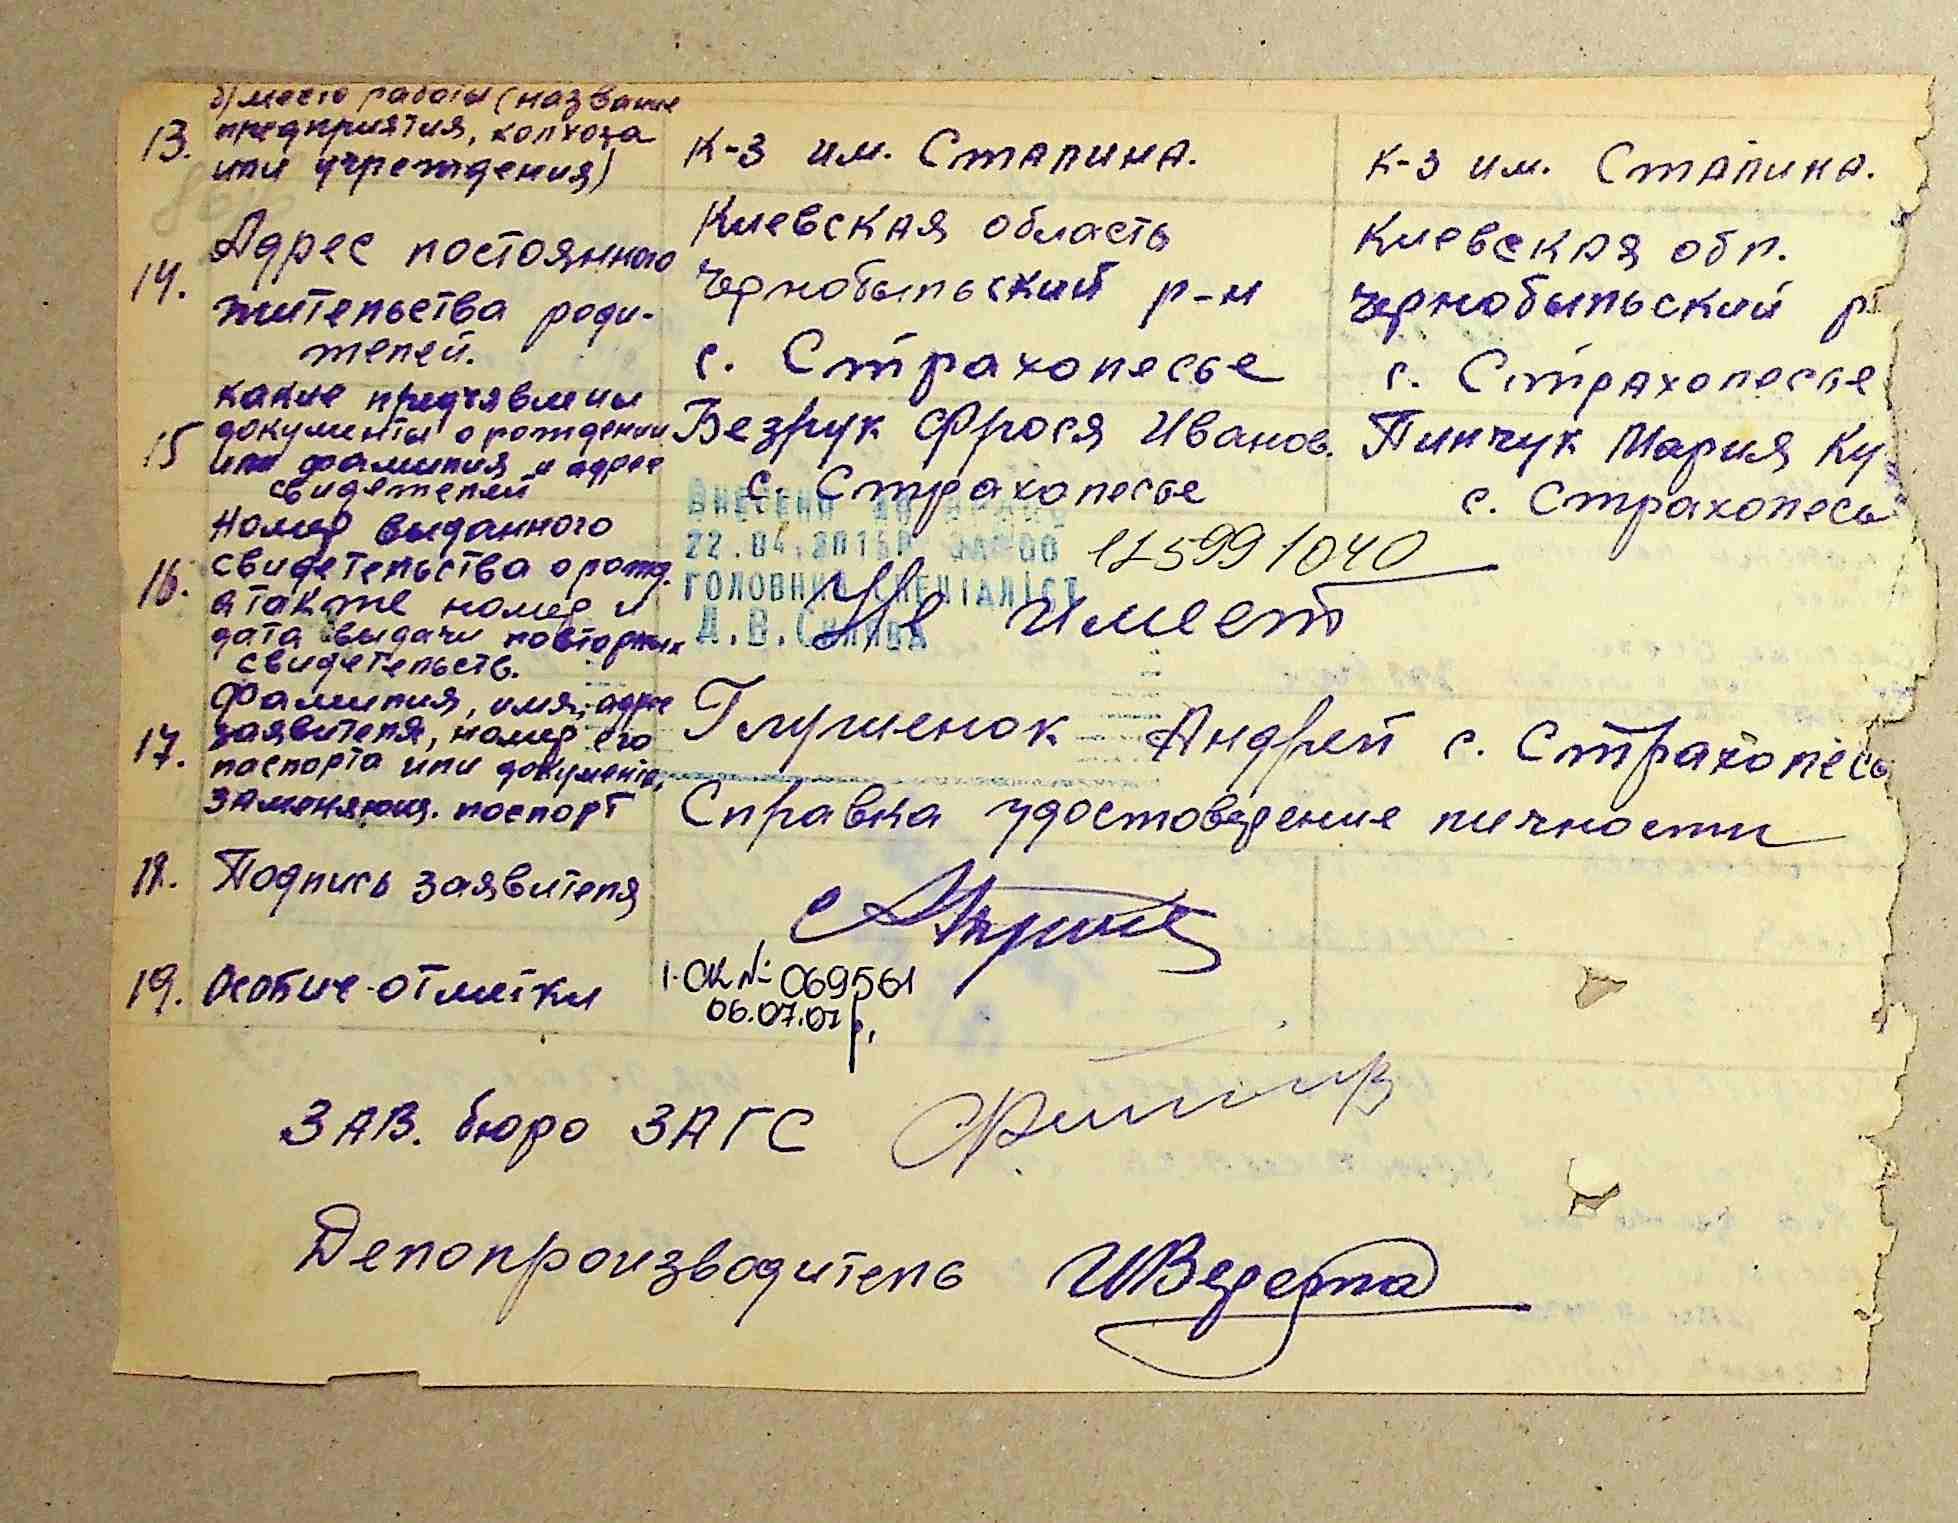 б) место работы (название
13. предприятия, колхоза
или учреждения)
К-з им. Сталина.
К-з им. Сталина.
14. Адрес постоянного
жительства роди-
телей.
Киевская область
Чернобыльский р-н
с. Страхолесье
Киевская обл.
Чернобыльский р
с. Страхолесье
15 какие предъявлены
документы о рождении
или фамилия и адрес
свидетелей
Безрук Фрося Иванов.
с. Страхолесье
Пинчук Мария Ку
с. Страхолесь
16. Номер выданного
свидетельства о рожд.
а также номер и
дата выдачи повторных
свидетельств.
22.04.201
ГОЛОВНИЙ СПЕЦІАЛІСТ
Д.В.
17599/040
Не имеет
17. Фамилия, имя, адрес
заявителя, номер его
паспорта или документа,
заменяющ. поспорт
Глушенок Андрей с. Страхолесь
Справка удостоведение личности
18. Подпись заявителя
19. Особые отметки
I-ОК № 069561
06.07.01р.
ЗАВ. бюро ЗАГС
Делопроизводитель